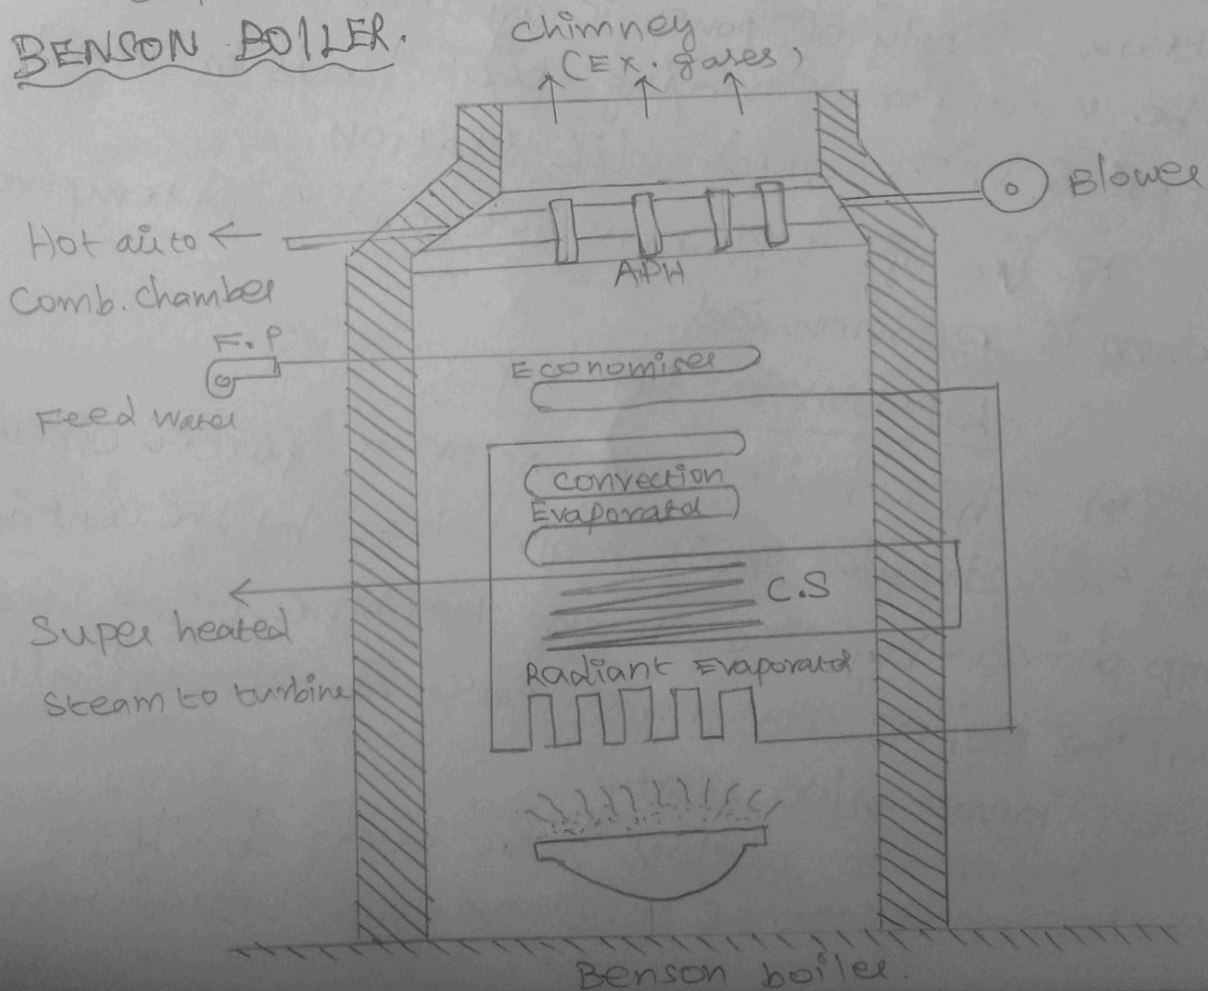 BENSON BOILER.
Chimney
(Ex. gases)
Blower
Hot air to
Comb. chamber
APH
F.P
Feed water
Economiser
Convection
Evaporator
C.S
Super heated
Steam to turbine
Radiant Evaporator
Benson boiler.